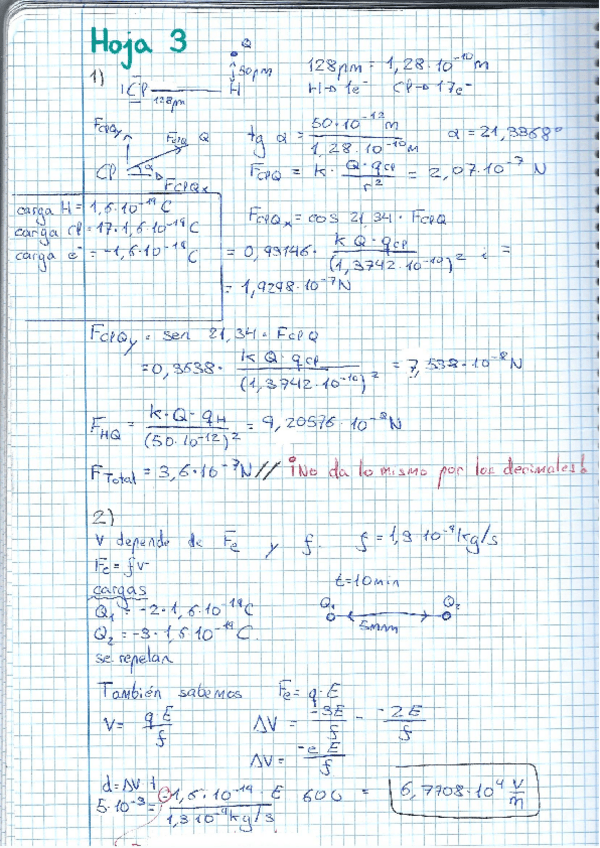 Hoja 3
Q
1) Cl 128pm H 50pm 128pm = 1,28·10⁻¹⁰m
H→1e⁻ Cl→17e⁻
tg α = 50·10⁻¹²m / 1,28·10⁻¹⁰m α = 21,3368°
FClQy FClQ Q
Cl α FClQx
FClQ = k· Q·qCl / r² = 2,07·10⁻⁷ N
carga H = 1,6·10⁻¹⁹C
carga Cl = 17·1,6·10⁻¹⁹C
carga e⁻ = -1,6·10⁻¹⁹C
FClQx = cos 21,34 · FClQ
= 0,93146· k Q·qCl / (1,3742·10⁻¹⁰)² =
= 1,9298·10⁻⁷N
FClQy = sen 21,34 · FClQ
= 0,3638· k Q·qCl / (1,3742·10⁻¹⁰)² = 7,538·10⁻⁸N
FHQ = k·Q·qH / (50·10⁻¹²)² = 9,20576·10⁻⁸N
FTotal = 3,6·10⁻⁷N // ¡No da lo mismo por los decimales!
2)
V depende de Fe y f. f = 1,3·10⁻⁹kg/s
Fe = fv
t=10min
cargas
Q₁ = -2·1,6·10⁻¹⁹C
Q₁ Q₂
5mm
Q₂ = -3·1,6·10⁻¹⁹C.
se repelan
También sabemos Fe = q·E
V = qE / f ΔV = -3E / f - -2E / f
ΔV = -e E / f
d = ΔV t
5·10⁻³ = -1,6·10⁻¹⁹ · E / 1,3·10⁻⁹kg/s 600 = 6,7708·10⁴ V/m